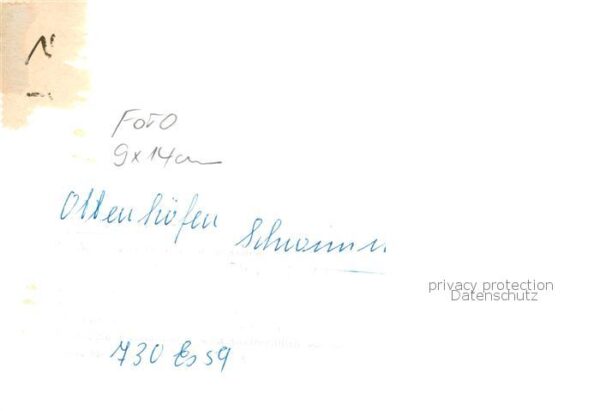 FOTO
9x14cm
Ottenhöfen
privacy protection
Datenschutz
730 Es 59